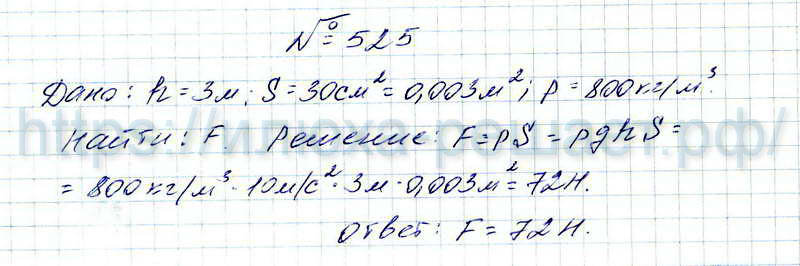 № 525
Дано: h = 3м; S = 30см² = 0,003м²; ρ = 800кг/м³.
Найти: F. Решение: F = pS = ρghS =
= 800кг/м³ · 10м/с² · 3м · 0,003м² = 72Н.
Ответ: F = 72Н.
https://илюха-решает.рф/